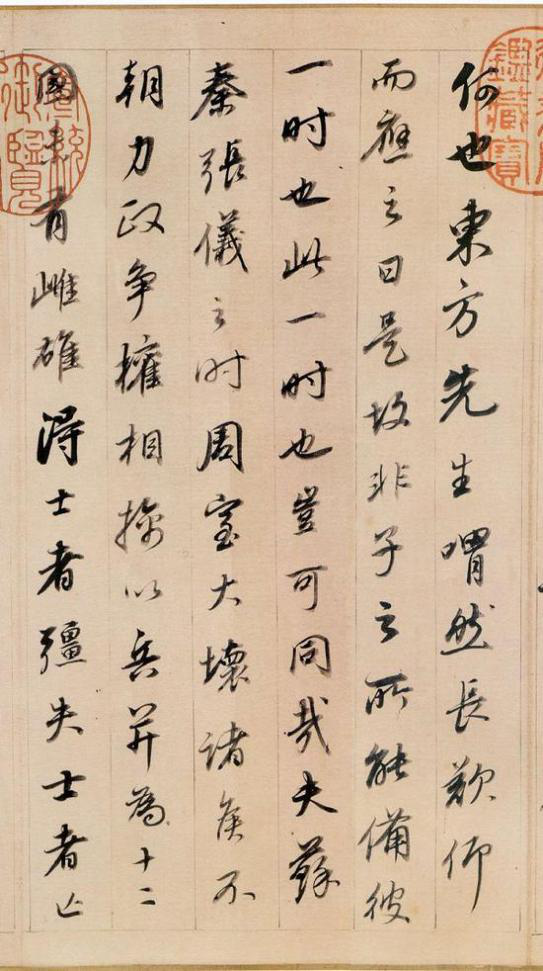 何也東方先生喟然長歎仰
而應之曰是故非子之所能備彼
一时也此一时也豈可同哉夫蘇
秦張儀之时周室大壞諸侯不
朝力政争權相擒以兵并為十二
國未有雌雄得士者彊失士者亡
鑑藏寶
宣統
御覽